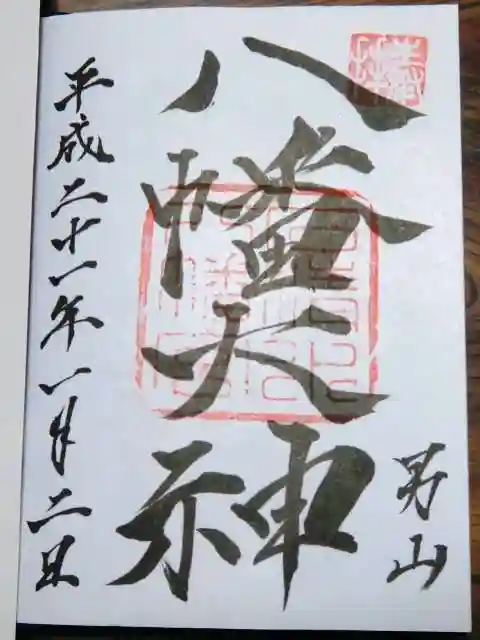 男山
八幡大神
平成二十一年八月二日